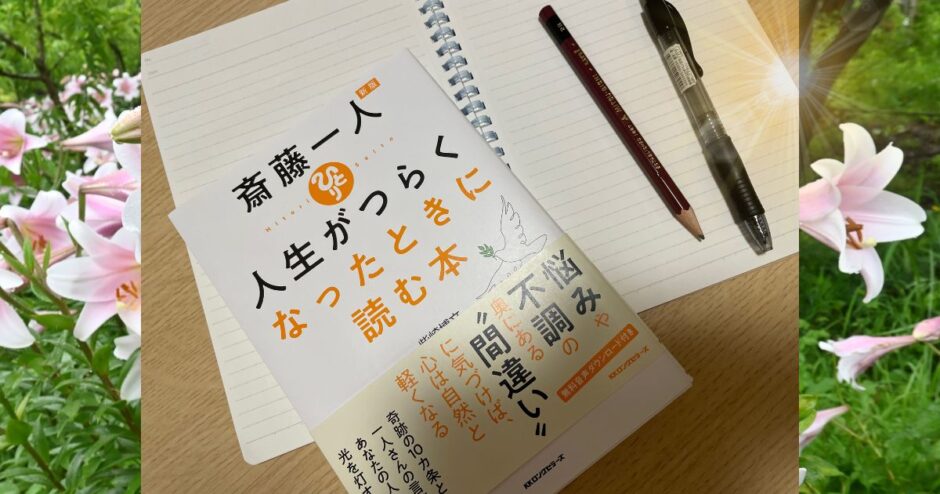 新版
斎藤一人
Hitori Saito
ひとり
人生がつらく
なったときに
読む本
悩みや
不調の
奥にある
“間違い”
に気づけば、
心は自然と
軽くなる
無料音声ダウンロード付き
奇跡の10カ条と
一人さんの言
あなたの人
光を灯す
KKロングセラーズ
KKロングセラーズ